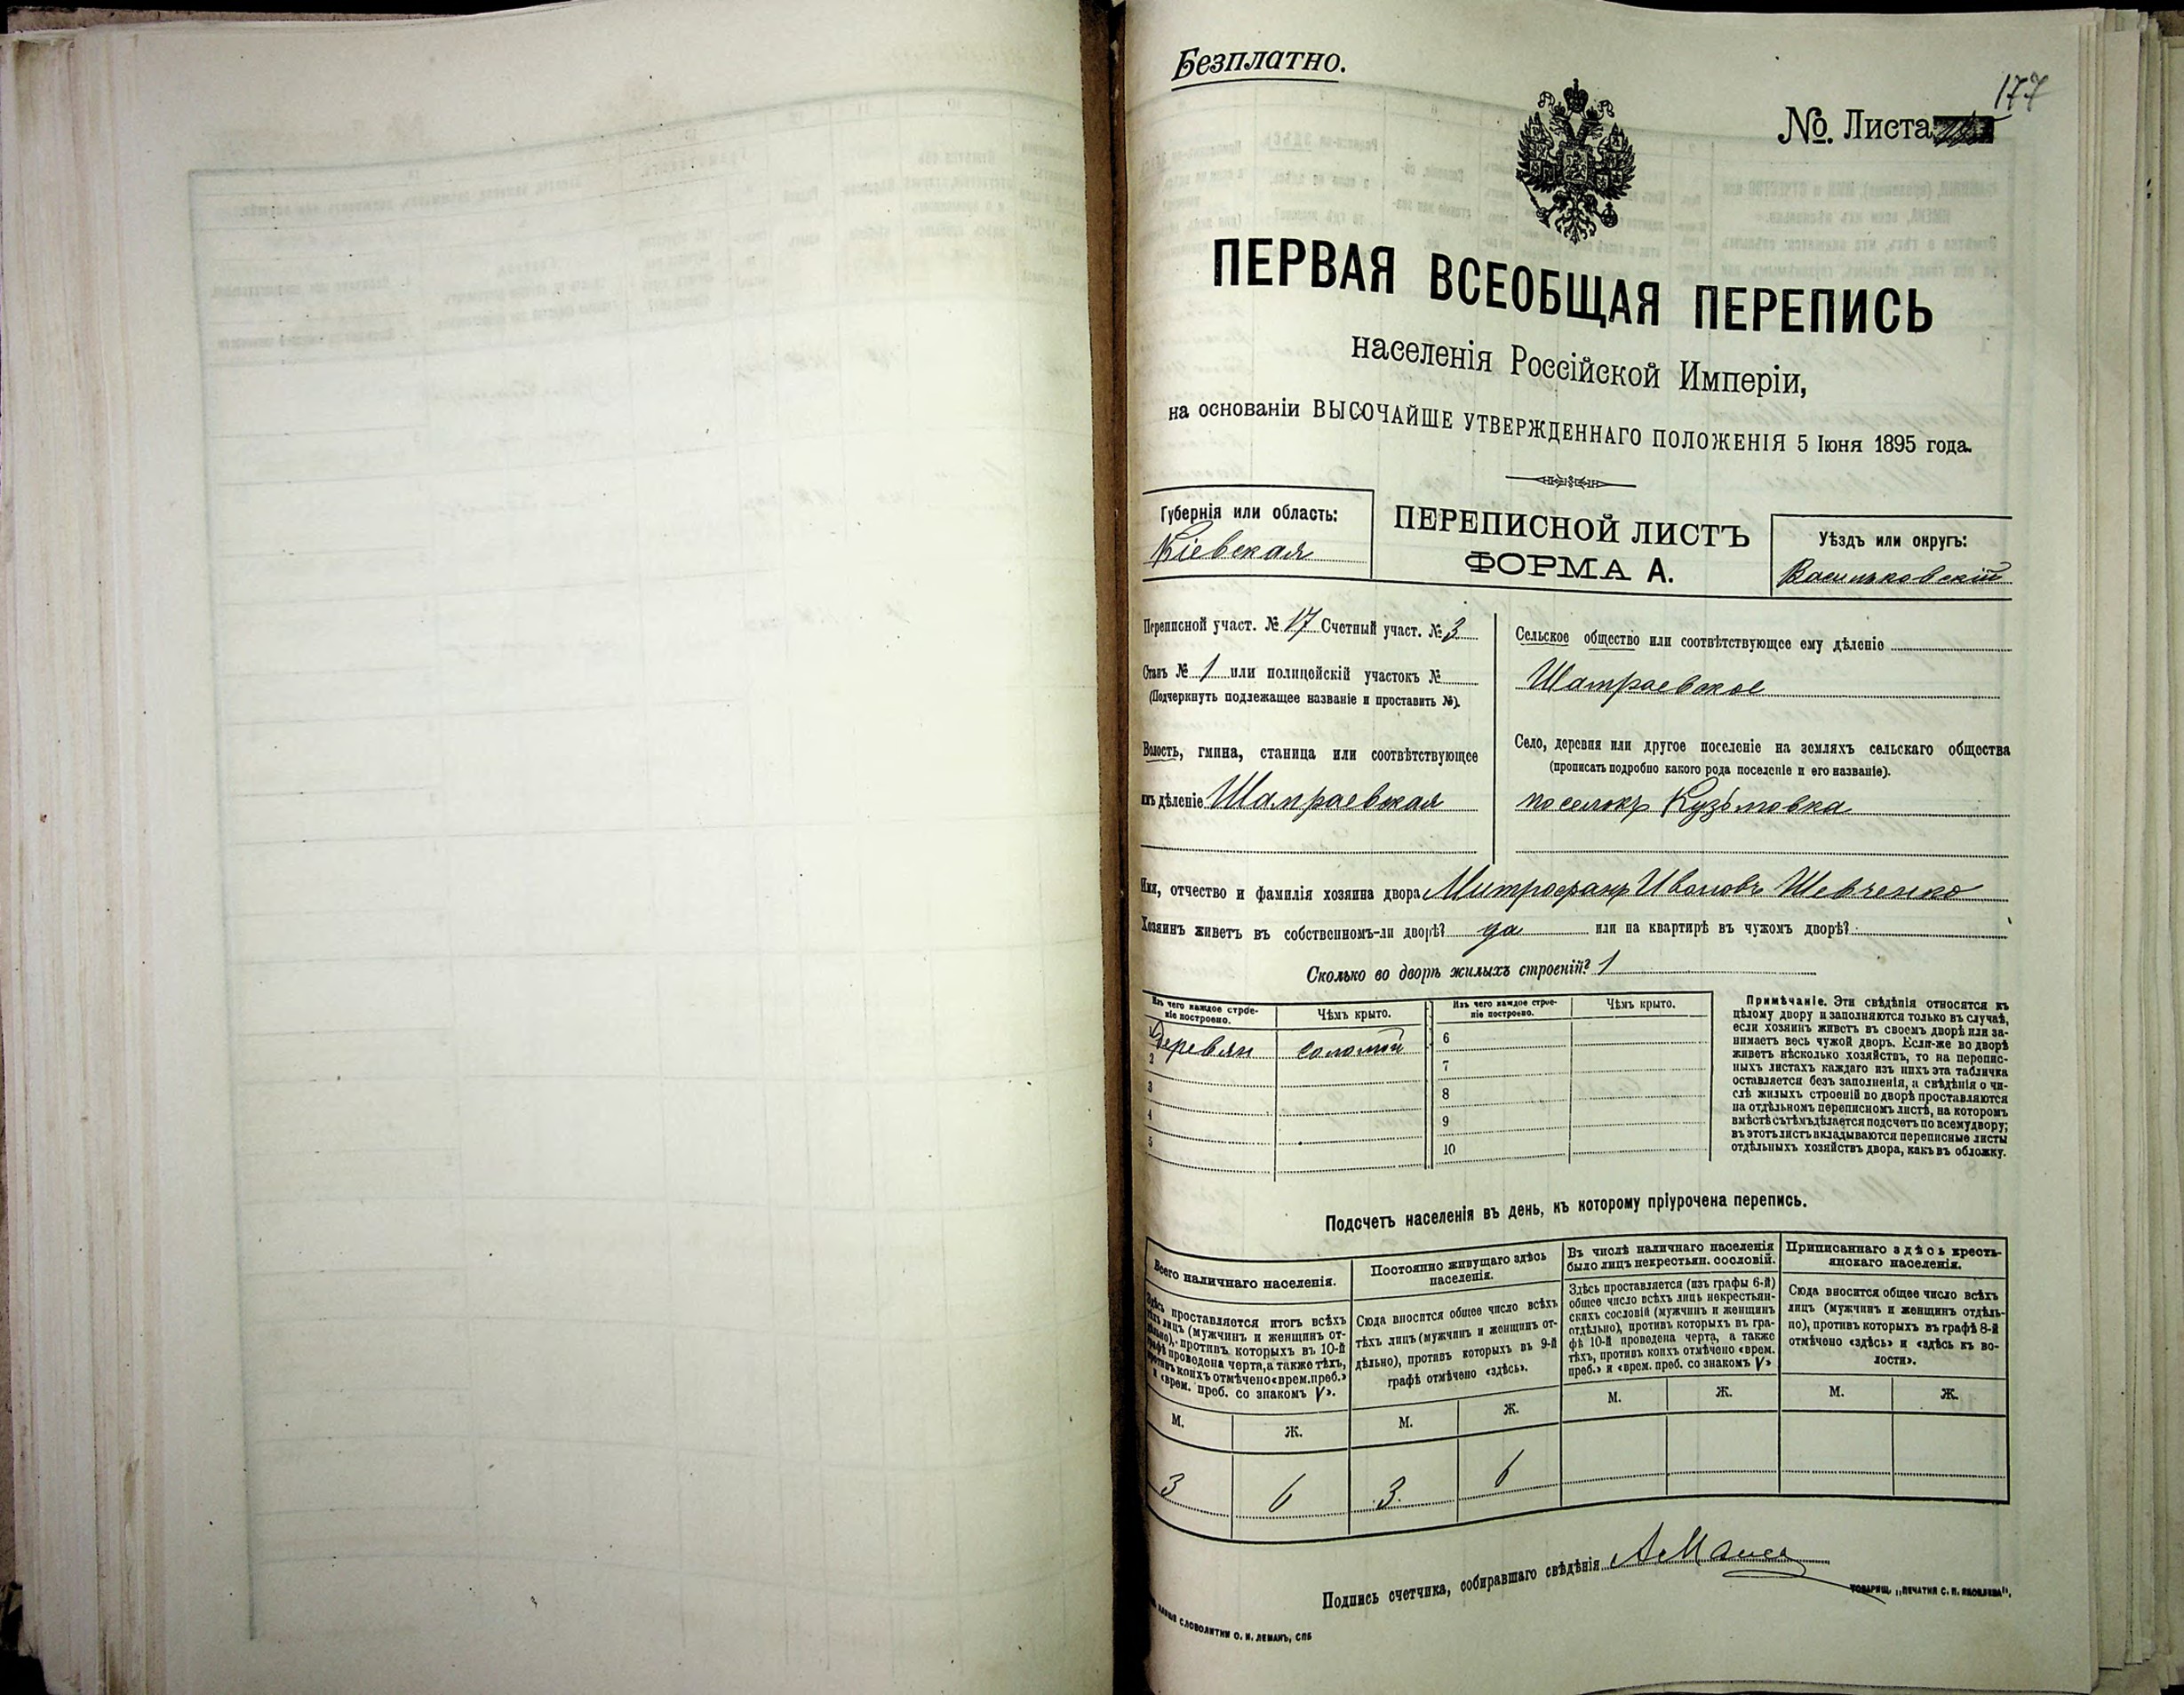 Безплатно.
177
№. Листа
ПЕРВАЯ ВСЕОБЩАЯ ПЕРЕПИСЬ
населенія Россійской Имперіи,
на основаніи ВЫСОЧАЙШЕ УТВЕРЖДЕННАГО ПОЛОЖЕНІЯ 5 Іюня 1895 года.
Губернія или область:
Кіевская
ПЕРЕПИСНОЙ ЛИСТЪ
ФОРМА А.
Уѣздъ или округъ:
Васильковскій
Переписной участ. № 17 Счетный участ. № 3
Станъ № 1 или полицейскій участокъ №
(Подчеркнуть подлежащее названіе и проставить №).
Волость, гмина, станица или соотвѣтствующее
имъ дѣленіе Шамраевская
Сельское общество или соотвѣтствующее ему дѣленіе
Шамраевское
Село, деревня или другое поселеніе на земляхъ сельскаго общества
(прописать подробно какого рода поселеніе и его названіе).
поселокъ Кузьмовка
Имя, отчество и фамилія хозяина двора Митрофанъ Ивановъ Шевченко
Хозяинъ живетъ въ собственномъ-ли дворѣ? да или на квартирѣ въ чужомъ дворѣ?
Сколько во дворѣ жилыхъ строеній? 1
Изъ чего каждое строе-
ніе построено.
Чѣмъ крыто.
Изъ чего каждое строе-
ніе построено.
Чѣмъ крыто.
1 Деревян соломой
2
3
4
5
6
7
8
9
10
Примѣчаніе. Эти свѣдѣнія относятся къ
цѣлому двору и заполняются только въ случаѣ,
если хозяинъ живетъ въ своемъ дворѣ или за-
нимаетъ весь чужой дворъ. Если-же во дворѣ
живетъ нѣсколько хозяйствъ, то на перепис-
ныхъ листахъ каждаго изъ нихъ эта табличка
оставляется безъ заполненія, а свѣдѣнія о чи-
слѣ жилыхъ строеній во дворѣ проставляются
на отдѣльномъ переписномъ листѣ, на которомъ
вмѣстѣ съ тѣмъ дѣлается подсчетъ по всему двору;
въ этотъ листъ вкладываются переписные листы
отдѣльныхъ хозяйствъ двора, какъ въ обложку.
Подсчетъ населенія въ день, къ которому пріурочена перепись.
Всего наличнаго населенія.
Здѣсь проставляется итогъ всѣхъ
тѣхъ лицъ (мужчинъ и женщинъ от-
дѣльно), противъ которыхъ въ 10-й
графѣ проведена черта, а также тѣхъ,
противъ коихъ отмѣчено «врем. преб.»
и «врем. преб. со знакомъ V».
Постоянно живущаго здѣсь
населенія.
Сюда вносится общее число всѣхъ
тѣхъ лицъ (мужчинъ и женщинъ от-
дѣльно), противъ которыхъ въ 9-й
графѣ отмѣчено «здѣсь».
Въ числѣ наличнаго населенія
было лицъ некрестьян. сословій.
Здѣсь проставляется (изъ графы 6-й)
общее число всѣхъ лицъ некрестьян-
скихъ сословій (мужчинъ и женщинъ
отдѣльно), противъ которыхъ въ гра-
фѣ 10-й проведена черта, а также
тѣхъ, противъ коихъ отмѣчено «врем.
преб.» и «врем. преб. со знакомъ V»
Приписаннаго здѣсь кресть-
янскаго населенія.
Сюда вносится общее число всѣхъ
лицъ (мужчинъ и женщинъ отдѣль-
но), противъ которыхъ въ графѣ 8-й
отмѣчено «здѣсь» и «здѣсь къ во-
лости».
М. Ж. М. Ж. М. Ж. М. Ж.
3 6 3 6
Подпись счетчика, собиравшаго свѣдѣнія
СЛОВОЛИТНИ О. И. ЛЕМАНЪ, СПБ
ТОВАРИЩ. „ПЕЧАТНЯ С. П. ЯКОВЛЕВА",